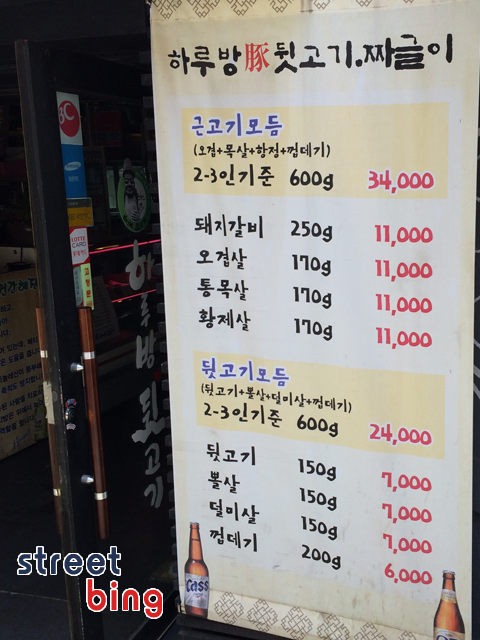 하루방豚뒷고기.짜글이
근고기모듬
(오겹+목살+항정+껍데기)
2-3인기준 600g 34,000
돼지갈비 250g 11,000
오겹살 170g 11,000
통목살 170g 11,000
황제살 170g 11,000
뒷고기모듬
(뒷고기+뽈살+덜미살+껍데기)
2-3인기준 600g 24,000
뒷고기 150g 7,000
뽈살 150g 7,000
덜미살 150g 7,000
껍데기 200g 6,000
Cass
하루방뒷고기
LOTTE CARD
street
bing